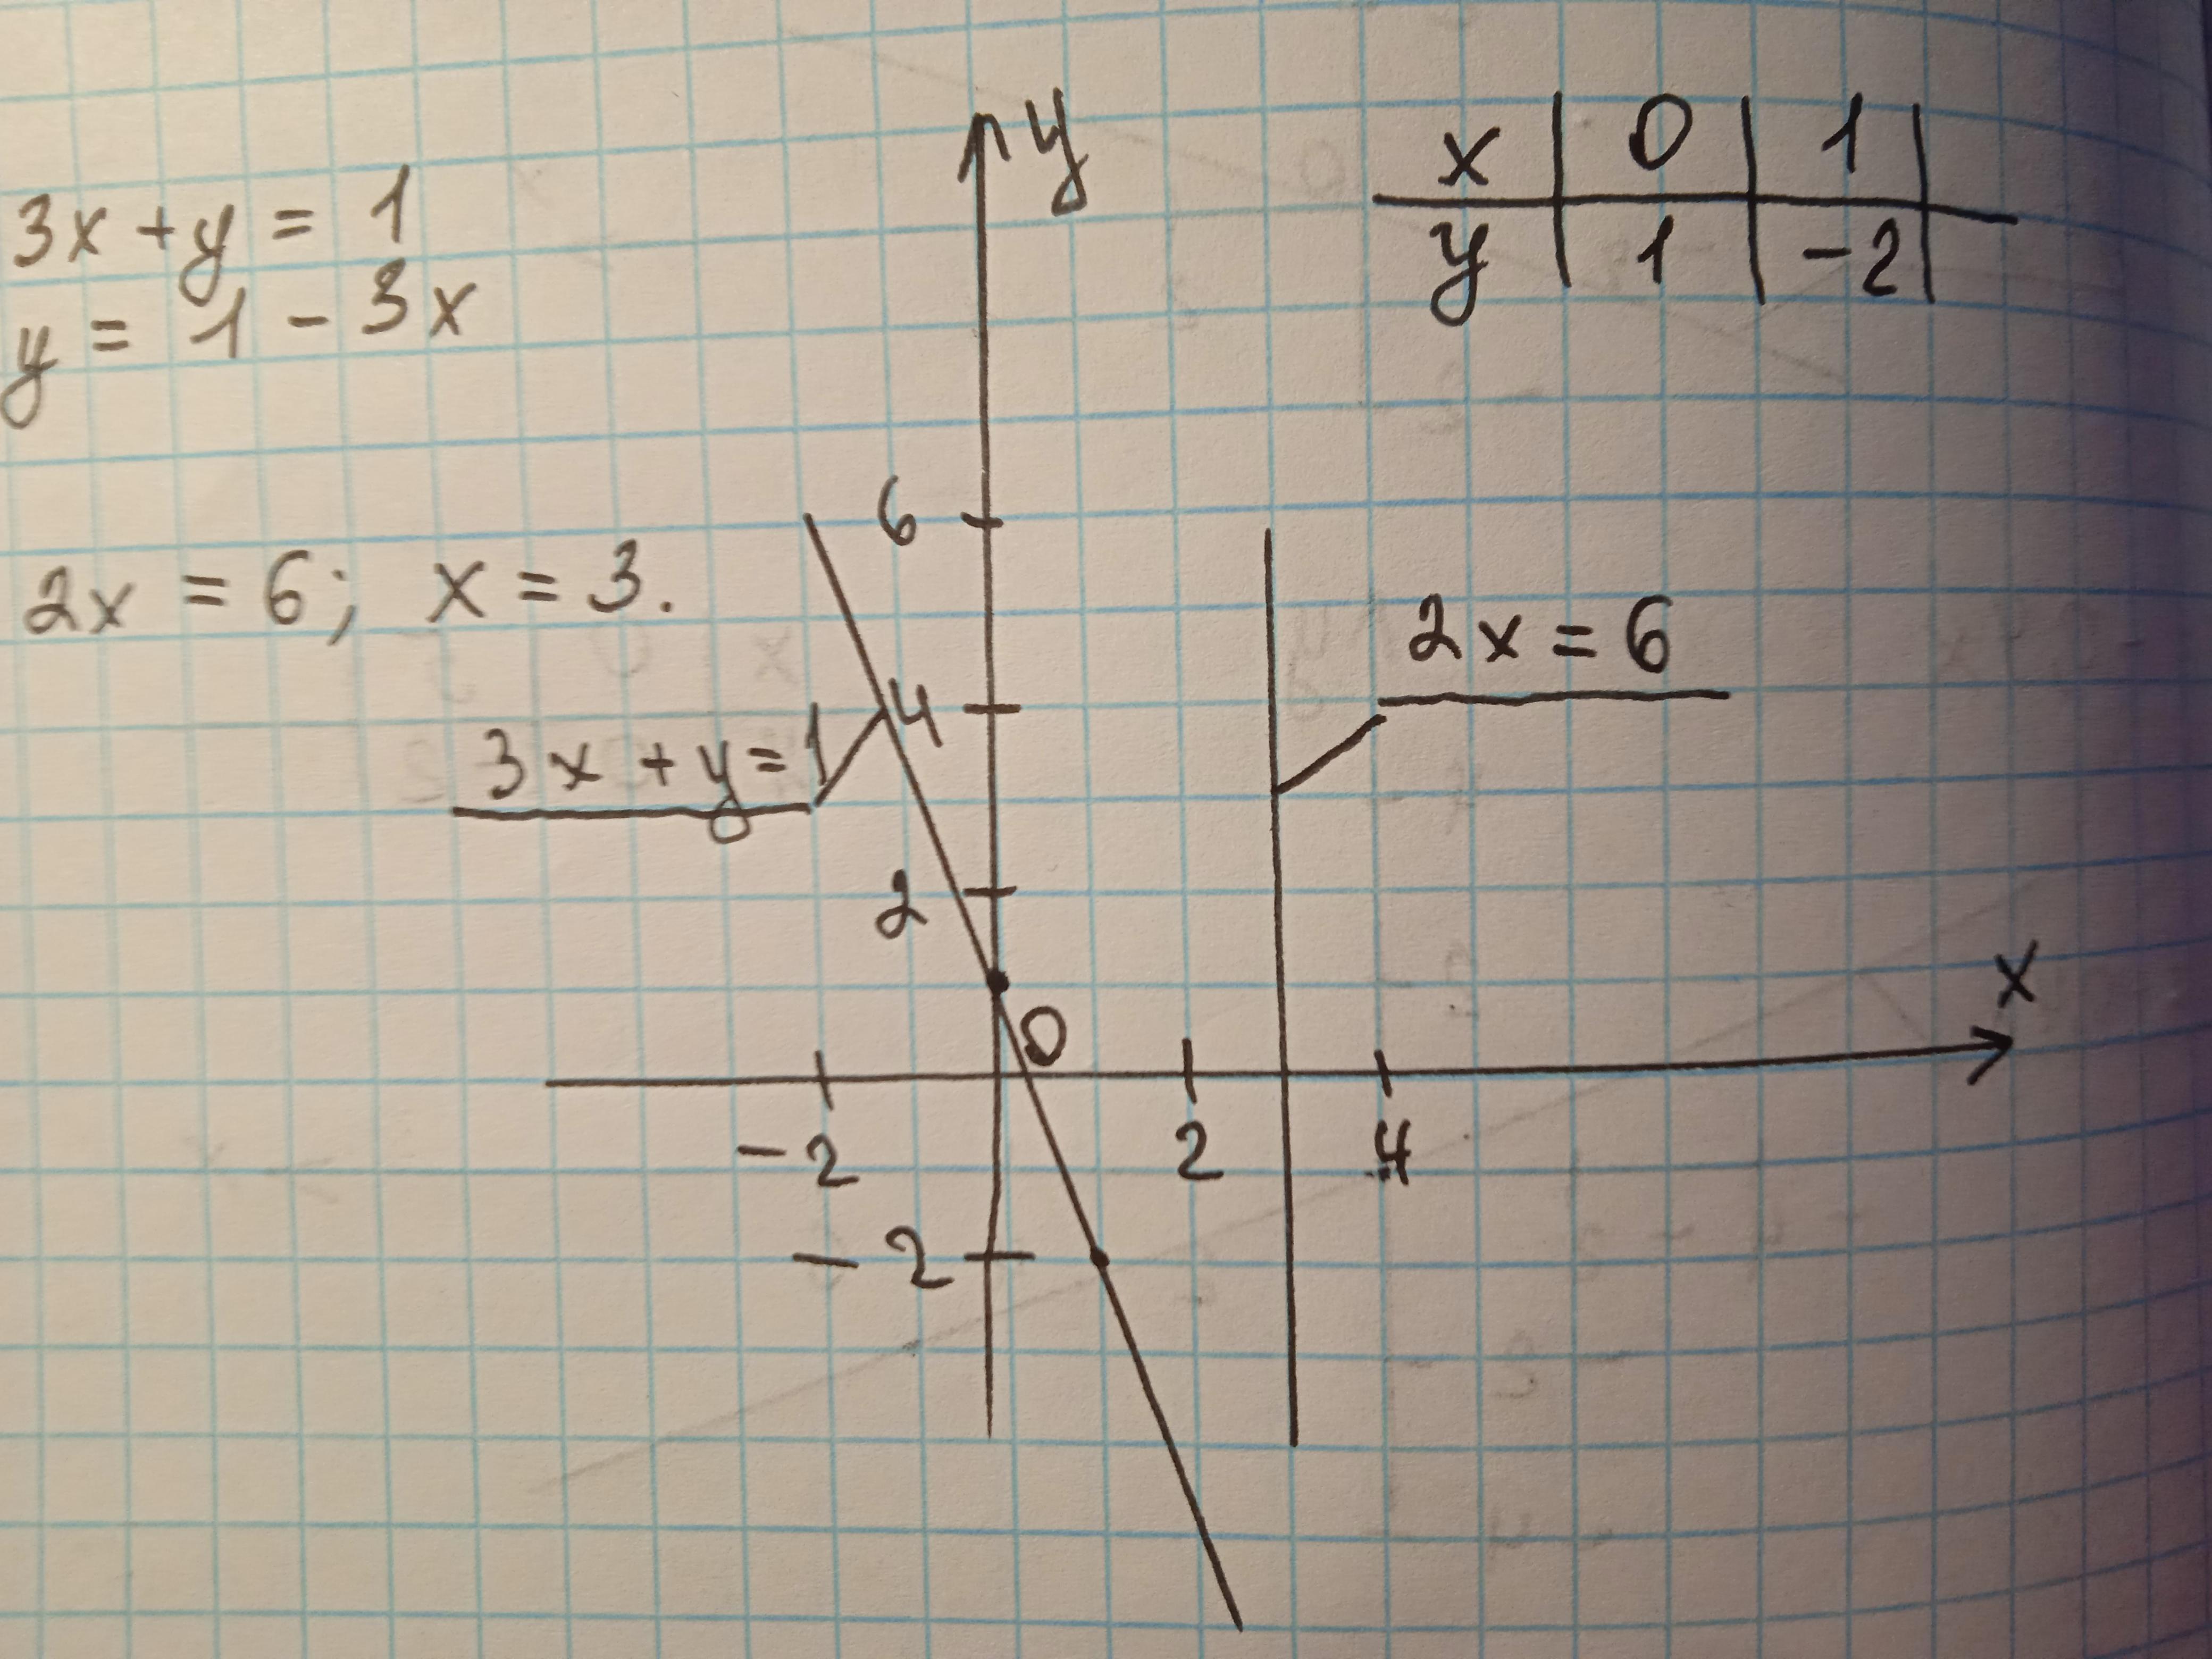 3x + y = 1
y = 1 - 3x
2x = 6; x = 3.
y
x | 0 | 1 |
y | 1 | -2 |
6
4
2
0
-2
2x = 6
3x + y = 1
x
-2 2 4